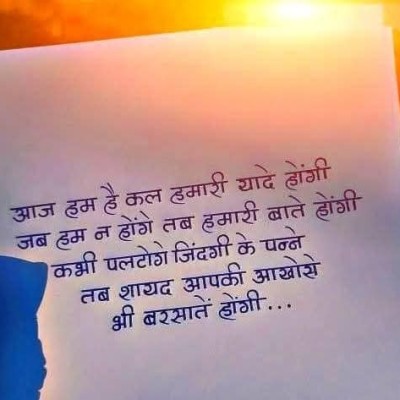 आज हम है कल हमारी यादे होंगी
जब हम न होंगे तब हमारी बाते होंगी
कभी पलटोगे जिंदगी के पन्ने
तब शायद आपकी आखोसे
भी बरसातें होंगी...